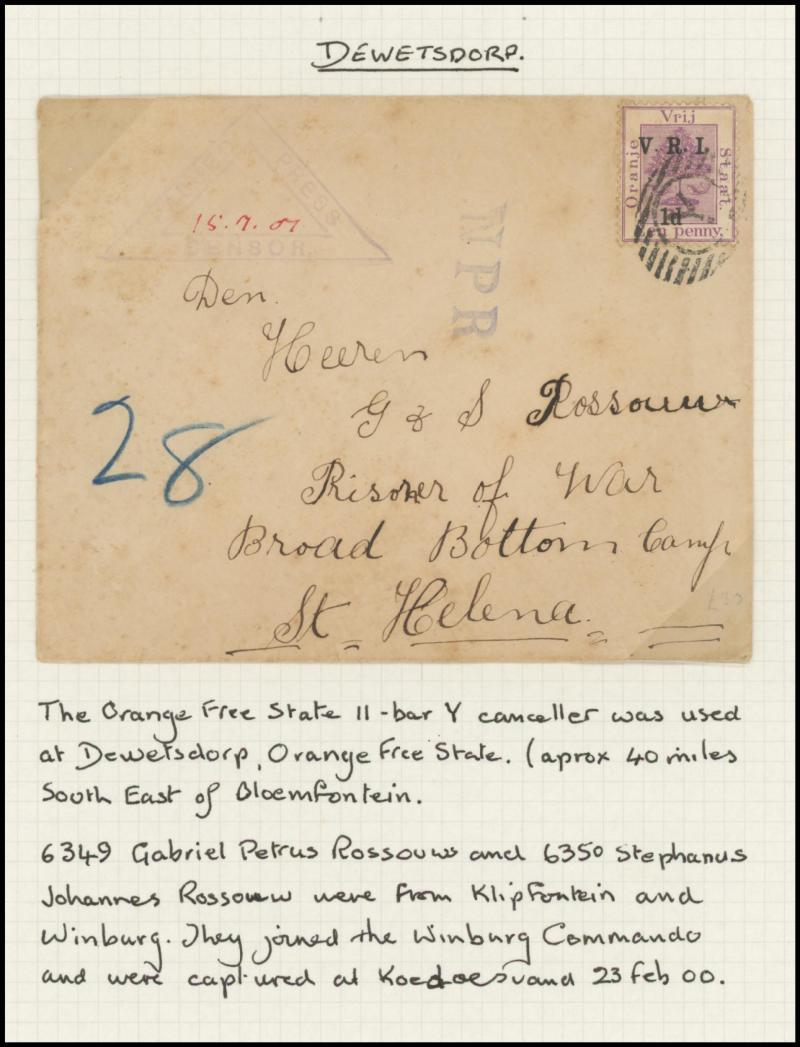 DEWETSDORP.
Vrij
Oranje
Staat.
V. R. I.
1d
Een penny.
PRESS
CENSOR.
15.7.01
MPR
Den.
Heeren
G & S Rossouw
Prisoner of War
Broad Bottom Camp
St Helena.
28
£30
The Orange Free State 11-bar Y canceller was used
at Dewetsdorp, Orange Free State. (aprox 40 miles
South East of Bloemfontein.
6349 Gabriel Petrus Rossouws and 6350 Stephanus
Johannes Rossouw were from Klipfontein and
Winburg. They joined the Winburg Commando
and were captured at Koedoesrand 23 Feb 00.